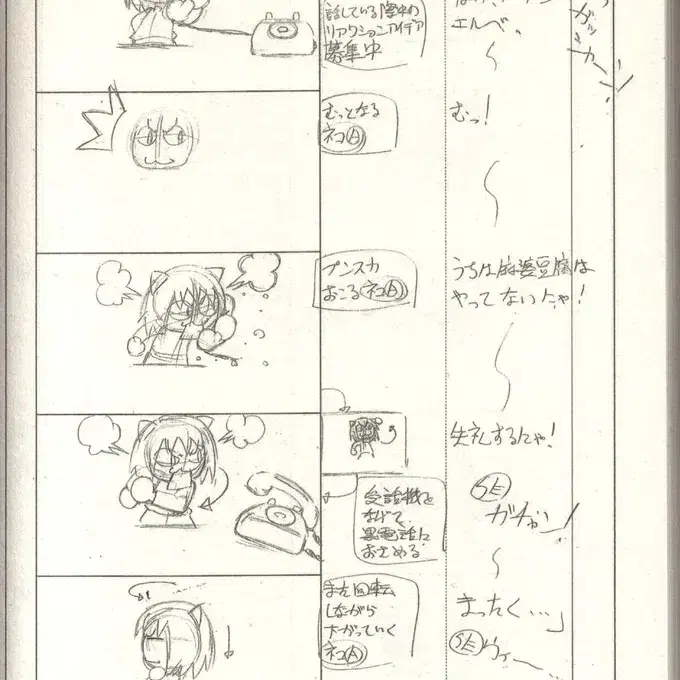 話している際中の
リアクションアイデア
募集中
エルベ、
ガッ
むっとなる
ネコA
むっ!
プンスカ
おこるネコA
うちは麻婆豆腐は
やってないにゃ!
失礼するにゃ!
受話機を
なげて
黒電話に
おさめる
SE
ガチャン
また回転
しながら
下がっていく
ネコA
まったく…」
SE ウィー